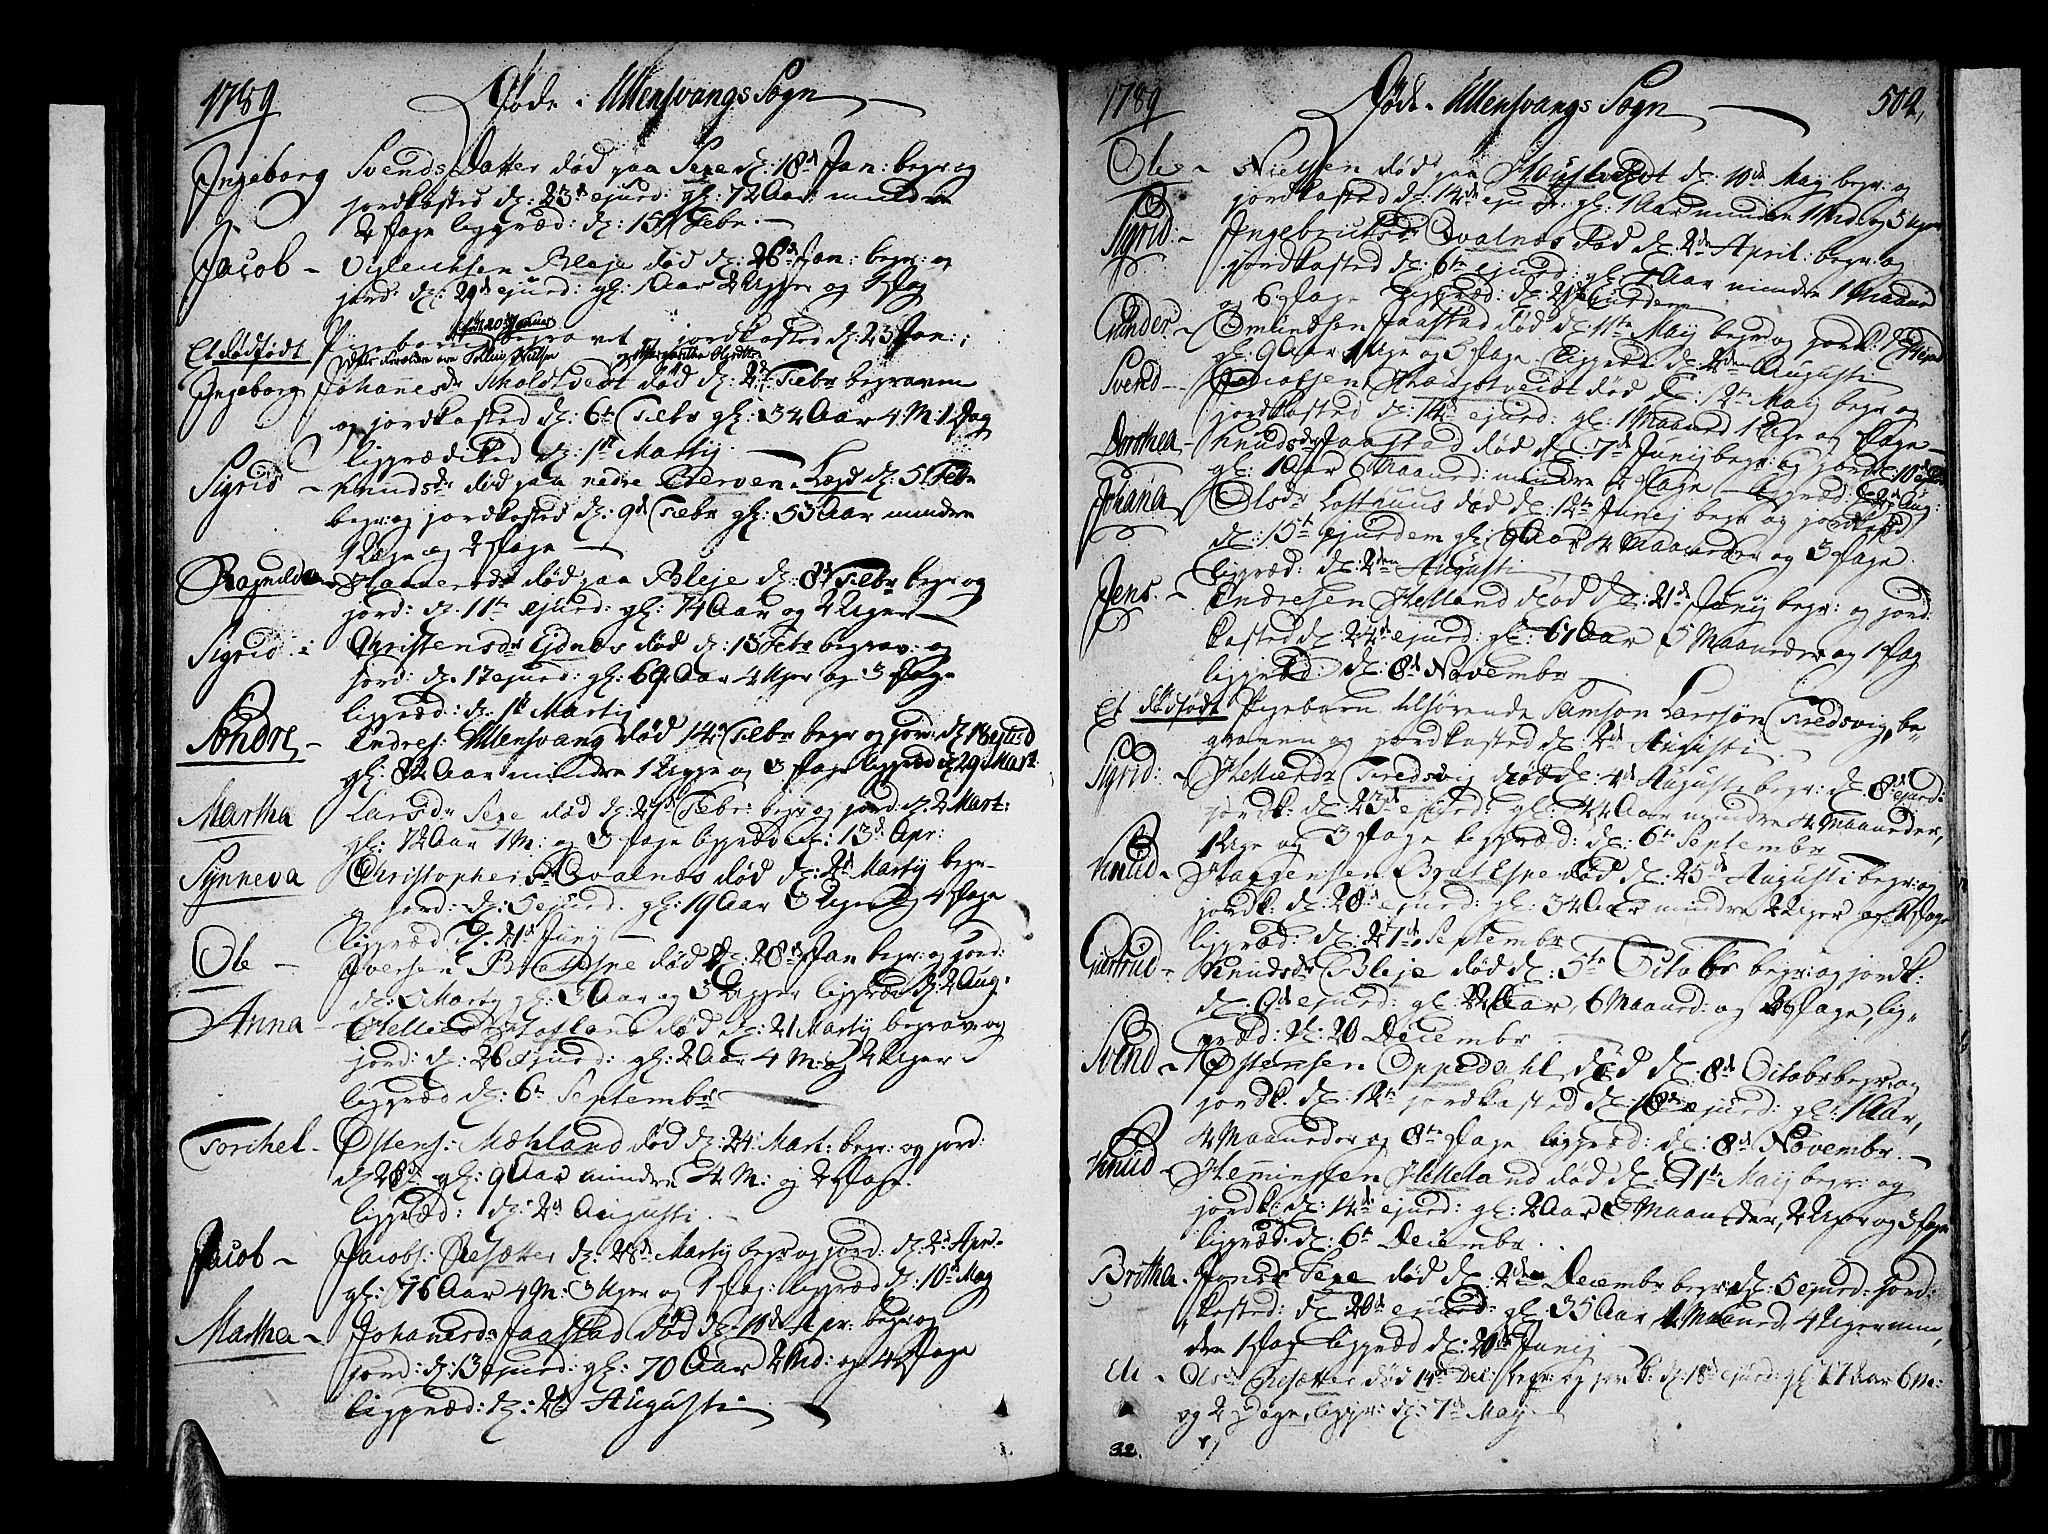 1789 Døde i Ullensvangs Sogn
Ingeborg Svends Datter død paa Sexe d: 18de Jan: begr: og
jordkasted d: 23de ejusd: gl: 72 Aar mindre
2 Dage liggræd: d: 15de Febr. —
Jacob – Bleje død d: 26de Jan: begr: og
jord: d: 29de ejusd: gl: 1 Aar 2 Uger og Dag
Et dødfødt Pigebarn begravet og jordkasted d: 23 Jan:
Ingeborg Johanesdr død d: 2de Febr begraven
og jordkasted d: 6te Febr gl: 34 Aar 4 M: 1 Dag
liggrædsted d: 1ste Martij —
Sigrid – Knudsdr død paa nedre Børven Lægd d: 5te Febr
begr: og jordkasted d: 9de Febr gl: 53 Aar mindre
1 Uge og 2 Dage —
Ragnilda død paa Bleje d: 8de Febr begr og
jord: d: 11te ejusd: gl: 74 Aar og 2 Uger —
Sigrid Christensdr Ejdnes død d: 13 Febr begrav: og
jord: d: 17 ejusd: gl: 69 Aar 4 Uger og 3 Dage
liggræd: d: 1ste Martij
Sondre – Endres: Ullensvang død 14de Febr begr og jord: d: 18 ejusd
gl: 82 Aar mindre 1 Uge og 3 Dage liggræd d: 29 Mart:
Martha Larsdr Sexe død d: 27de Febr: begr og jord: d: 2 Mart:
gl: 72 Aar 1 M: og 3 Dage liggræd d: 13de Apr:
Synneva Christophersdr Qvalnæs død d: 2de Martij begr
og jord: d: 5 ejusd. gl: 19 Aar 3 Uger og 4 Dage
liggræd d: 21de Junij —
Ole – Iversen Bratespe død d: 28de Jan begr og jord:
d: Martij gl: 3 Aar og 3 Uger liggræd d: 2 Aug:
Anna – død d: 21 Martij begrav: og
jord: d: 26 Ejusd: gl: 2 Aar 4 M: og 2 Uger
liggræd d: 6te Septembr —
Torchel – Østens: Mæhland død d: 24 Mart: begr: og jord:
d 28de gl: 9 Aar mindre 4 M: og 2 Dage.
liggræd: d: 2de Augusti —
Jacob – Jacobs: Resætter d: 28de Martij begr og jord: d: 2de Apr:
gl: 76 Aar 4 M: 3 Uger og 1 Dag: liggræd d: 10de Maj
Martha – Johanesdr: Jaastad død d: 10de Apr: begr: og
jord: d: 13 ejusd: gl: 70 Aar 2 Md: og 4 Dage
liggræd: d: 2de Augusti —
1789 Døde i Ullensvangs Sogn — 502,
Ole – Nielsen død paa d: 10de Maj begr: og
jordkasted d: 14de ejusd: gl: 1 Aar mindre 1 Md: og 3 Uger
Sigrid: – Qvalnæs død d: 2den April: begr: og
jordkasted d: 6te ejusd: gl: Aar mindre 1 Maaned
og 6 Dage liggræd: d: 21de ejusdem
Gunder – Omundsen Jaastad død d: 11te Maij begr og jordk:
gl: 9 Aar 1 Uge og 5 Dage. liggræd d: 2den Augusti
Svend – Jacobsen død d: 12te Maij begr og
jordkasted d: 14de ejusd: gl: 1 Maaned 1 Uge og Dage —
Dorothea – Knudsdr Jaastad død d: 7de Junij begr: og jordk: 10de
gl: 1 Aar 6 Maaned: mindre 2 Dage – liggræd: d: 2de Aug:
Johana Olsdr Lofthuus død d: 12te Junij begr og jordkasted
d: 15te ejusdem gl: 9 Aar 4 Maaneder og 3 Dage.
liggræd: d: 2den Augusti —
Jens. – Endresen Helland død d: 21de Junij begr: og jord:
kasted d: 24de ejusd: gl: 67 Aar 5 Maaneder og 1 Dag
liggræd d: 8de Novembr —
Et dødfødt Pigebarn tilhørende Samson Larssøn Fredsvig, be-
graven og jordkasted d: 2de Augusti —
Sigrid: – Fredsvig død d: 4de Augusti begr: d: 8de ejusd:
jordk: d: 23de ejusd: gl: 42 Aar mindre 4 Maaneder,
1 Uge og 3 Dage liggræd: d: 6te Septembr
Knud – Haagensen Bratespe død d: 25de Augusti begr: og
jordk: d: 28de ejusd: gl: 34 Aar mindre 2 Uger og 2 Dage
liggræd: d: 27de Septembr —
Giertrud – Knudsdr Bleje død d: 5te Octobr begr: og jordk:
d: 9de ejusd: gl: 22 Aar, 6 Maaned: og 2 Dage, lig-
græd: d: 20 Decembr —
Svend – Østensen Oppedahl, død d: 8de Octobr begr: og
jordk: d: 12te jordkasted d: 18de ejusd: gl: 1 Aar,
4 Maaneder og 8te Dage liggræd: d: 8de Novembr. —
Knud – Hemingsen Helleland død d: 11te Maij begr: og
jordk: d: 14de ejusd: gl: 2 Aar 3 Maaneder, 2 Uger og 3 Dage
liggræd: d: 6te Decembr. —
Britha. – Jonsdr Sexe død d: 2den Decembr begr: d: 5 ejusd: jord:
kasted: d: 20de ejusd: gl: 35 Aar, 1 Maaned, 4 Uger min,
den 1 Dag liggræd d: 20de Junij —
Eli – Olsdr Resætter død 14de Dec: begr: og jordk: d: 18de ejusd: gl: 77 Aar 6 M:
og 2 Dage, liggr: d: 7de Maij —
32.